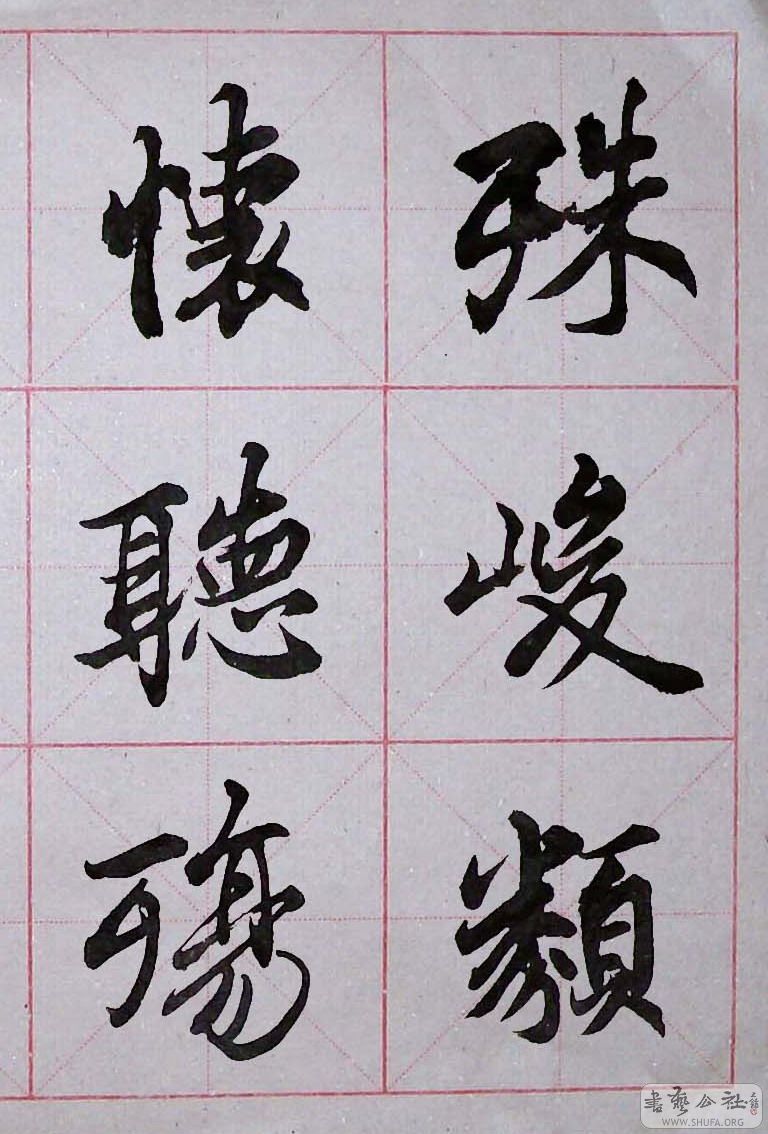 殊峻類
懷聽殤
書藝公社
WWW.SHUFA.ORG